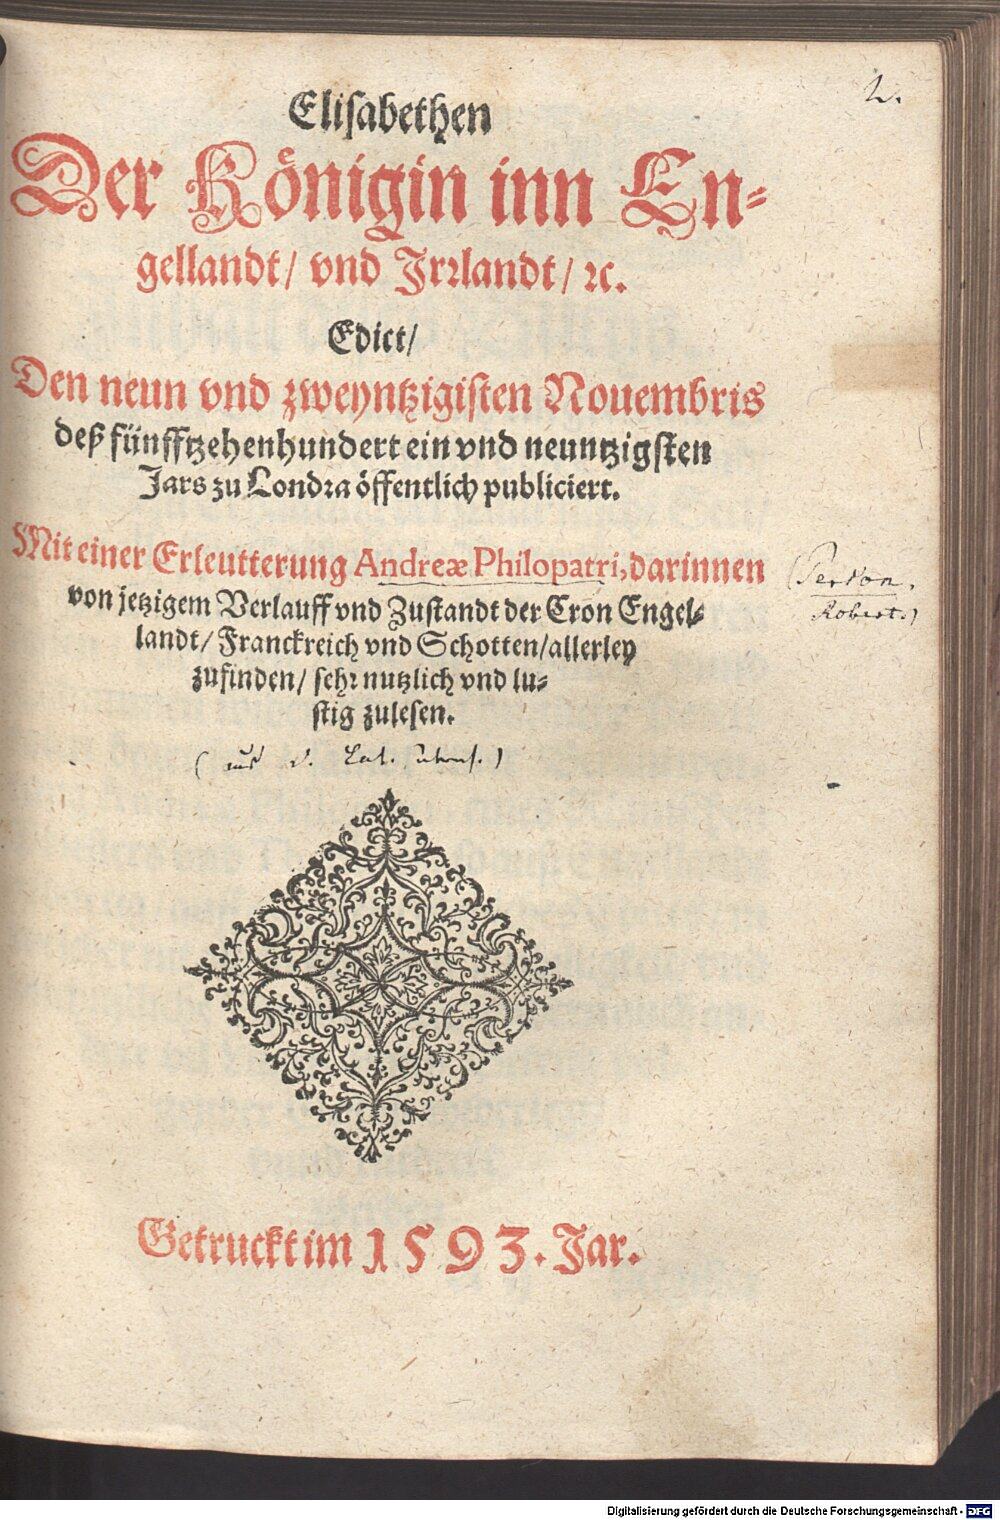 2.
Elisabethen
Der Königin inn En⸗
gellandt/ vnd Jrꝛlandt/ ꝛc.
Edict/
Den neun vnd zweyntzigisten Nouembris
deß fünfftzehenhundert ein vnd neuntzigsten
Jars zu Londra öffentlich publiciert.
Mit einer Erleutterung Andreæ Philopatri, darinnen
von jetzigem Verlauff vnd Zustandt der Cron Engel⸗
landt/ Franckreich vnd Schotten/ allerley
zufinden/ sehr nutzlich vnd lu⸗
stig zulesen.
(Person,
Robert.)
(aus d. Lat.
Getruckt im 1593. Jar.
Digitalisierung gefördert durch die Deutsche Forschungsgemeinschaft - DFG